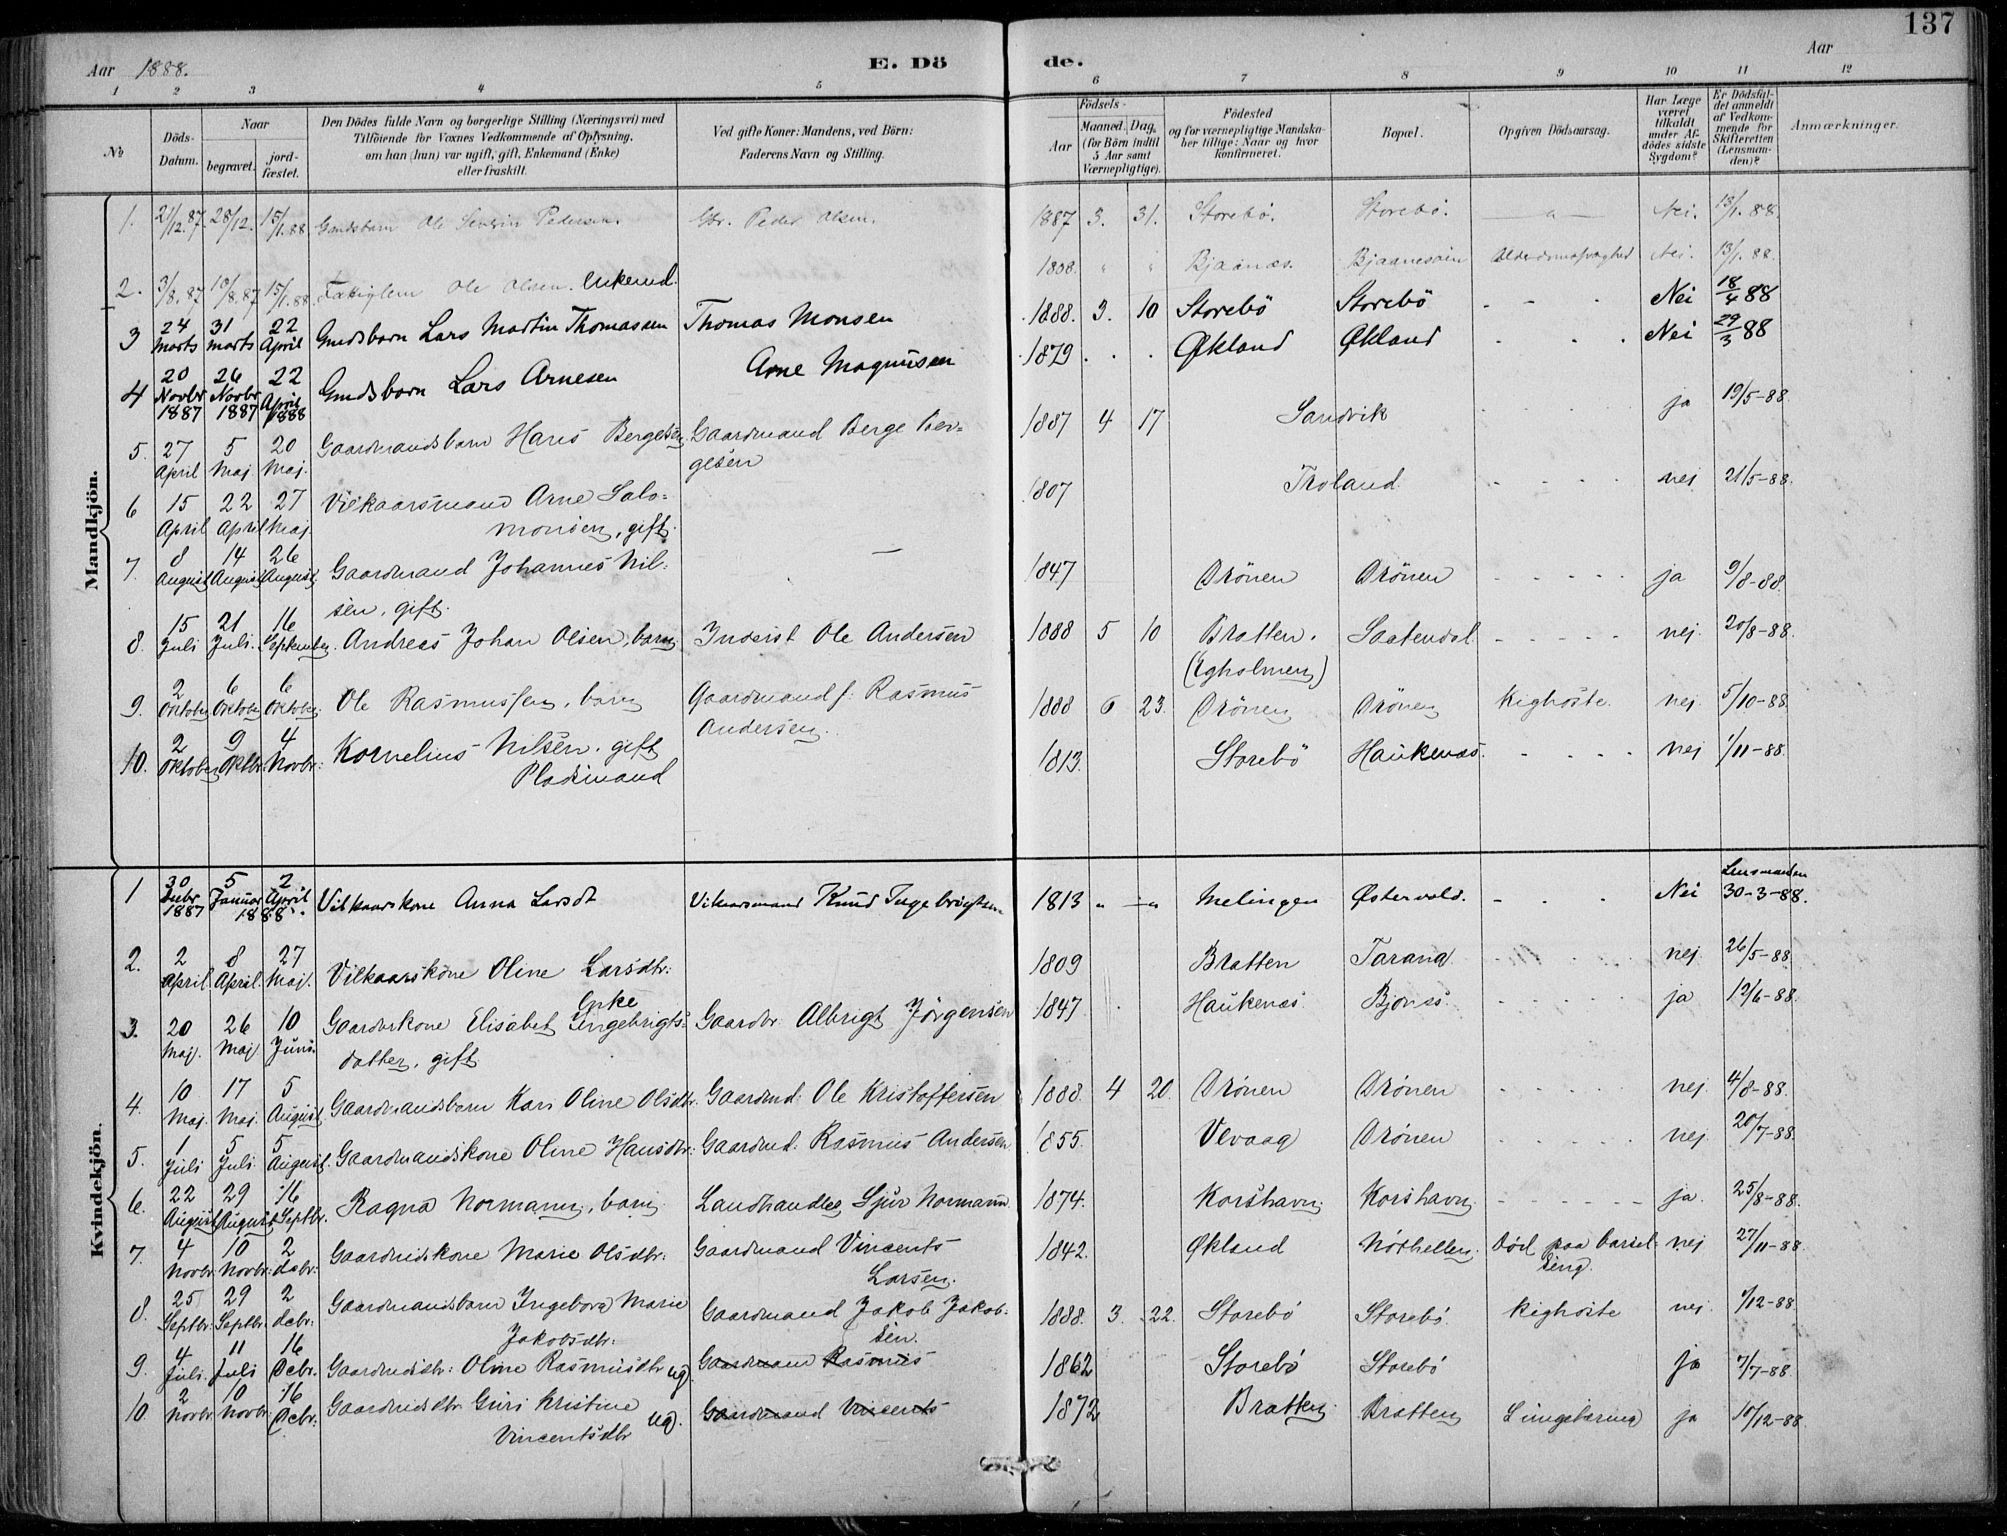 137
Aar 1888. E. Dö de. Aar
1 2 3 4 5 6 7 8 9 10 11 12
№ Döds-Datum. Naar begravet. jord-fæstet. Den Dödes fulde Navn og borgerlige Stilling (Næringsvei) med Tilföiende for Voxnes Vedkommende af Oplysning, om han (hun) var ugift, gift, Enkemand (Enke) eller fraskilt. Ved gifte Koner: Mandens, ved Börn: Faderens Navn og Stilling. Födsels- Aar Maaned. Dag. (for Börn indtil 5 Aar samt Værnepligtige). Födested og for værnepligtige Mandska-ber tillige: Naar og hvor konfirmeret. Bopæl. Opgiven Dödsaarsag. Har Læge været tilkaldt under Af-dödes sidste Sygdom? Er Dödsfal-det anmeldt af Vedkom-mende for Skifteretten (Lensman-den)? Anmærkninger.
Mandkjön.
1. 21/12.87. 28/12. 15/1.88 Gmdsbarn Ole Severin Pedersen. Gbr. Peder Olsen. 1887 3. 31. Storebö. Storebö. — " — Nei. 13/1.88.
2. 3/8.87 10/8.87 15/1.88 Ole Olsen. Enkemd. 1808. " " Bjaanæs. Alderdomssvaghed Nei. 13/1.88.
3 24 Marts 31 Marts 22 April Gmdsbarn Lars Martin Thomassen Thomas Monsen 1888. 3. 10 Storebö Storebö - - - Nei 18/4 88
4 20 Novbr 1887 26 Novbr 1887 22 April 1888 Gmdsbarn Lars Arnesen Arne Magnusen 1879 . . . Økland Økland . . . Nei 29/3 88
5. 27 April 5 Maj 20 Maj. Gaardmandsbarn Hans Bergesen Gaardmand Berge Ber-
gesen 1887 4 17 Sandvik ja 19/5-88.
6 15 April 22 April 27 Maj. Vilkaarsmand Arne Salo-
monsen, gift. 1807 Troland nej 21/5-88.
7. 8 August 14 August 26 August Gaardmand Johannes Nil-
sen, gift. — 1847 Drönen Drönen ja 9/8-88.
8. 15 Juli 21 Juli. 16 September. Andreas Johan Olsen, barn Inderst Ole Andersen 1888 5 10 Bratten. (Egholmen) nej. 20/8-88.
9. 2 Oktober 6 Oktober 6 Oktober. Ole Rasmussen, barn Gaardmand f. Rasmus
Andersen. 1888 6 23. Drönen Drönen Kighoste. nej. 5/10-88.
10. 2 Oktober 9 Oktbr. 4 Novbr: Kornelius Nilsen. gift
Pladsmand 1813. Storebö Haukenæs. nej 1/11-88.
Kvindekjön.
1 30 Debr 1887 5 Januar 2 April 1888. Vilkaarskone Anna Larsdt Vilkaarsmand Knud Ingebrigtsen 1813 " — " Melingen Østervold. - - - Nei Lensmanden 30-3-88.
2. 2 April. 8 April. 27 Maj. Vilkaarskone Oline Larsdtr:
Enke 1809 Bratten Tarang. nej. 26/5-88
3. 20 Maj. 26 Maj 10 Juni. Gaardbrskone Elisabet Ingebrigts-
datter, gift. Gaardbr. Albrigt Jörgensen 1847 Haukenæs Bjonæs. ja 12/6-88.
4. 10 Maj. 17 Maj. 5 August. Gaardmandsbarn Kari Oline Olsdtr. Gaardmd: Ole Kristoffersen 1888. 4 20. Drönen Drönen nej. 4/8-88.
5. 1 Juli 5 Juli 5 August. Gaardmandskone Oline Hansdtr: Gaardmd: Rasmus Andersen. 1855. Vevaag Drönen nej. 20/7-88.
6. 22 August 29 August 16 Septbr. Ragna Normann, barn Landhandler Sjur Normann. 1874. Korshavn Korshavn ja. 25/8-88.
7. 4 Novbr. 10 Novbr: 2 debr: Gaardmdskone Marie Olsdtr: Gaardmand Vincents
Larsen. 1842. Økland Nörhellen. Död paa barsel-
seng. nej 27/11-88.
8. 25 Septbr. 29 Septbr. 2 debr: Gaardmandsbarn Ingeborg Marie
Jakobsdtr: Gaardmand Jakob Jakob-
sen. 1888. 3. 22. Storebö Storebö. Kighoste nej. 1/12-88.
9. 4 Juli. 11 Juli 16 Decbr. Gaardmdsdtr: Oline Rasmusdtr ug. Gaardmand Rasmus 1862 Storebö Storebö ja 7/7-88.
10 2 Novbr. 10 Novbr. 16 Decbr: Gaardmdsdtr Guri Kristine
Vincentsdtr ug. Gaardmand Vincents 1872 Bratten Bratten ja 10/12-88.